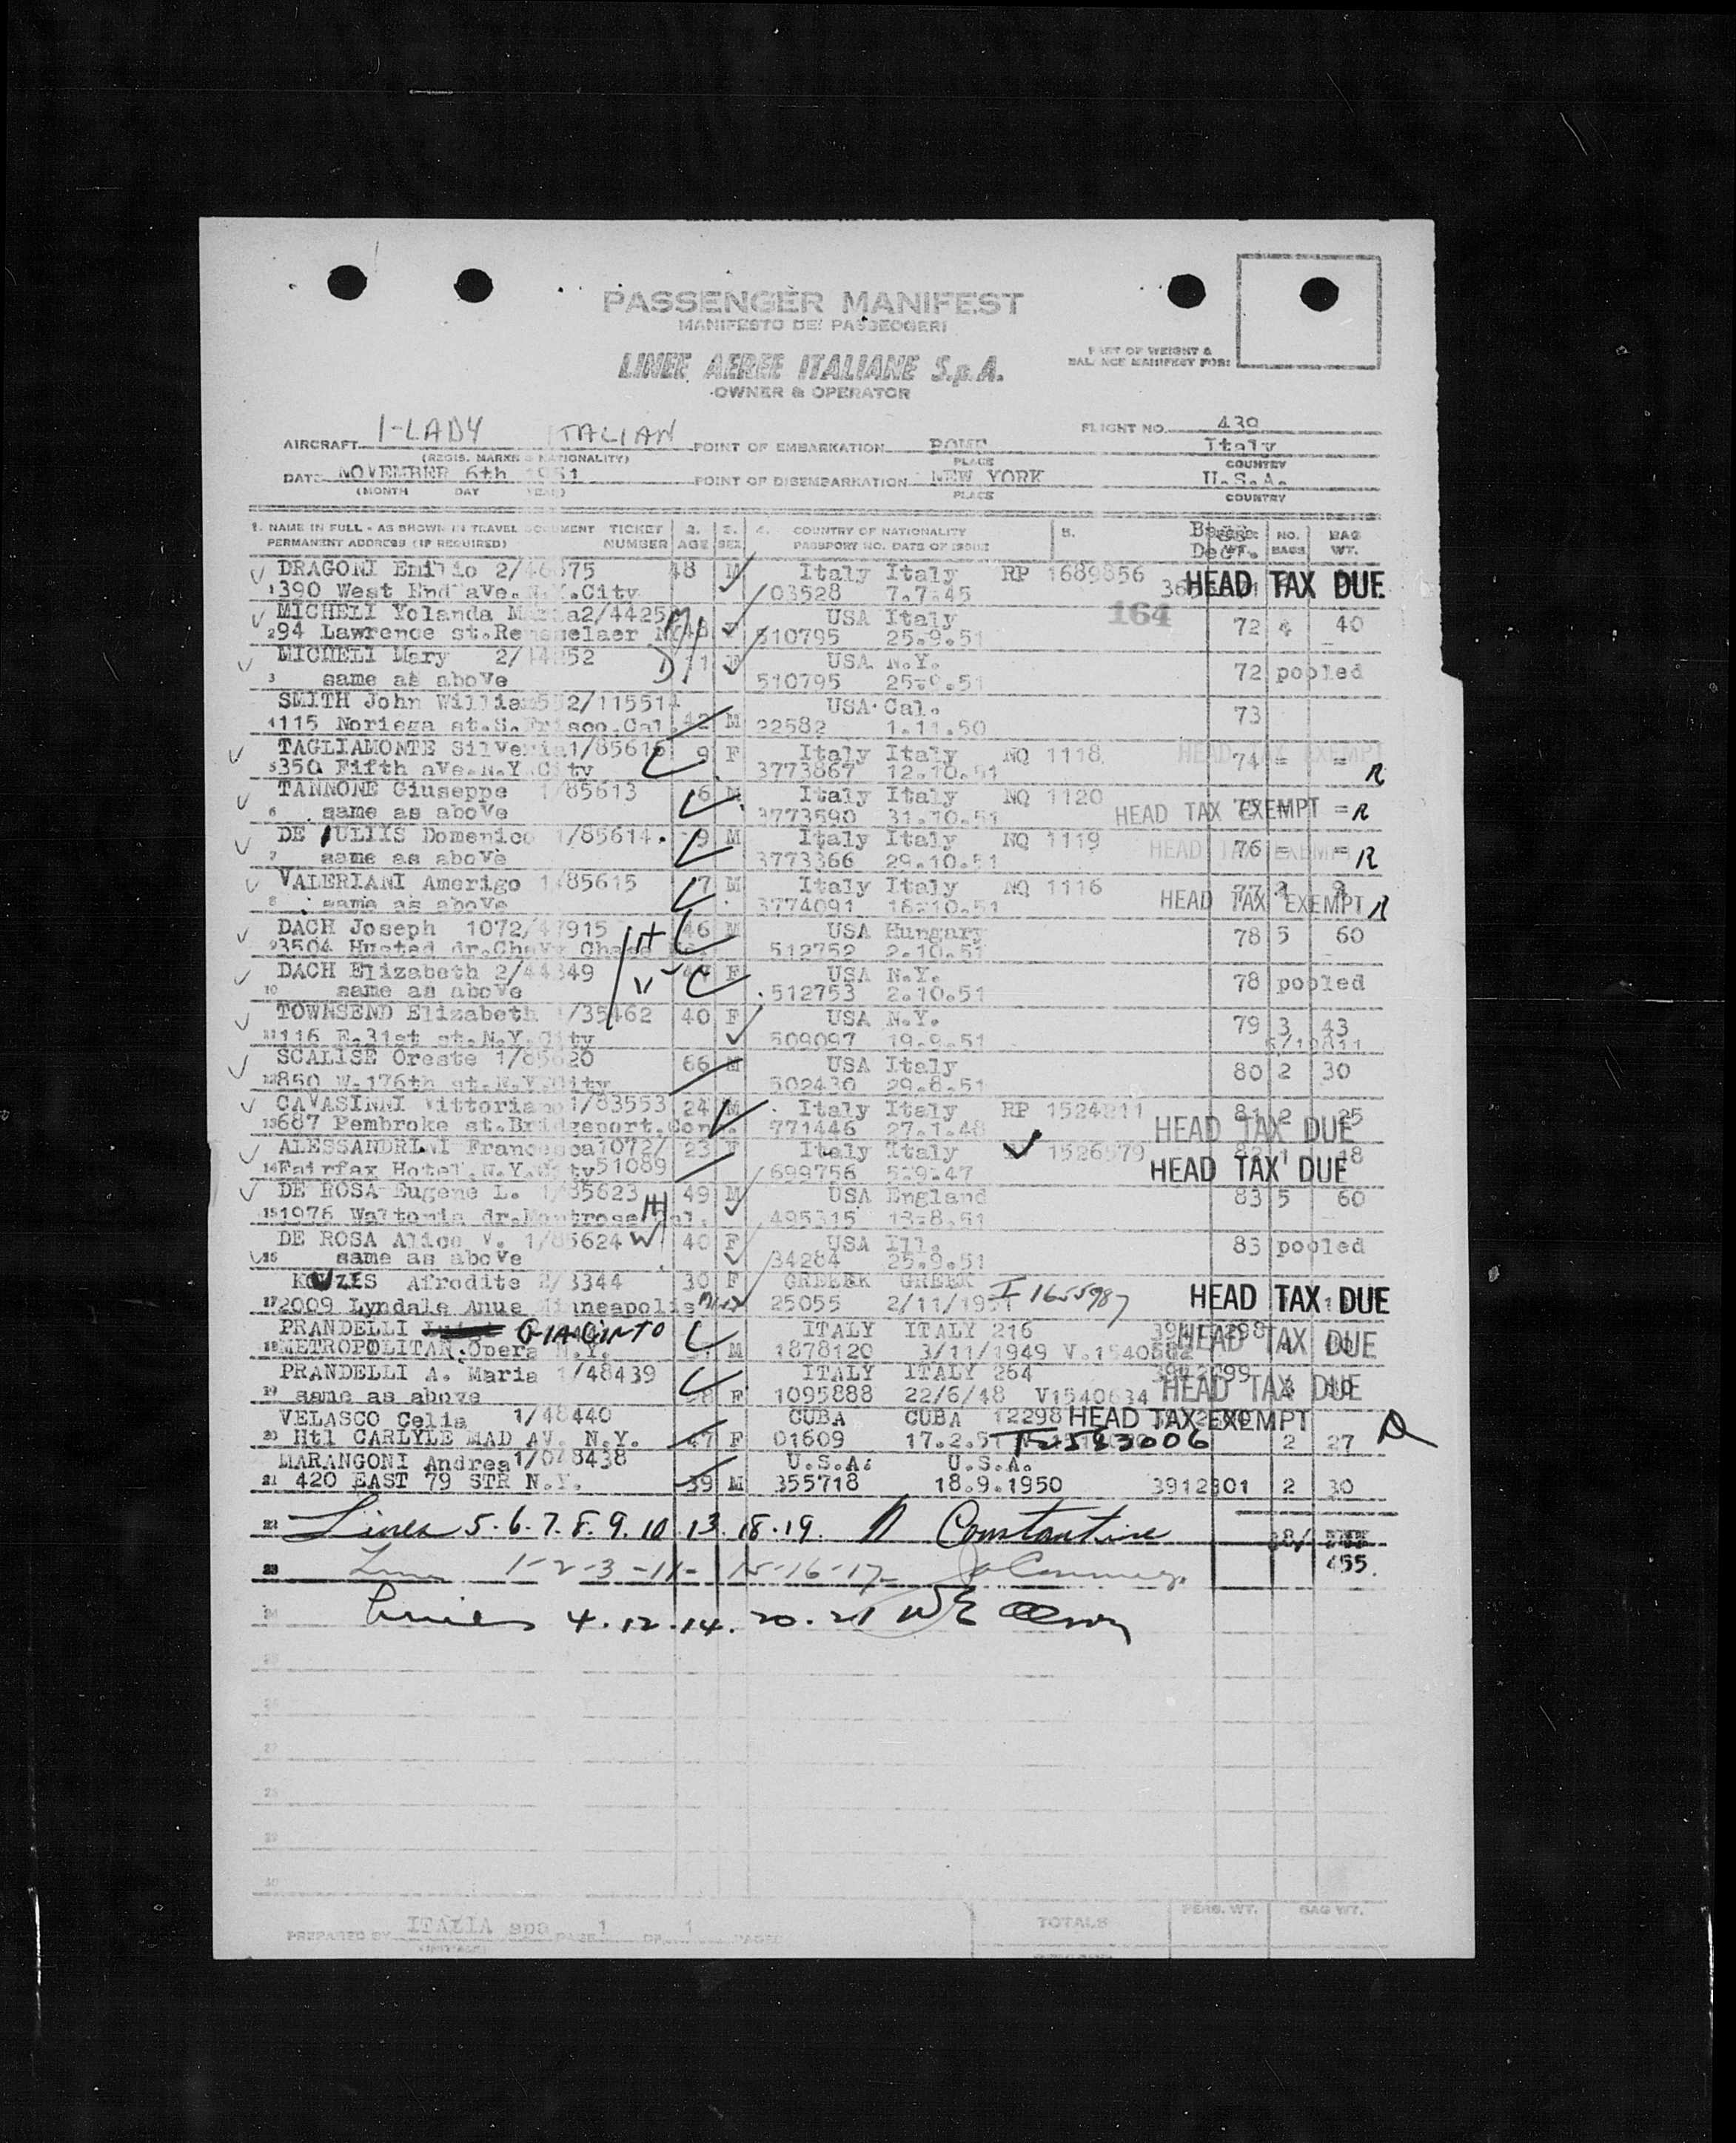 PASSENGER MANIFEST
MANIFESTO DEI PASSEGGERI
LINEE AEREE ITALIANE S.p.A.
OWNER & OPERATOR
PART OF WEIGHT &
BALANCE MANIFEST FOR:
FLIGHT NO. 439
AIRCRAFT I-LADY ITALIAN POINT OF EMBARKATION ROME Italy
(REGIS. MARKS & NATIONALITY) PLACE COUNTRY
DATE NOVEMBER 6th 1951 POINT OF DISEMBARKATION NEW YORK U.S.A.
(MONTH DAY YEAR) PLACE COUNTRY
1. NAME IN FULL - AS SHOWN IN TRAVEL DOCUMENT TICKET 2. 3. 4. COUNTRY OF NATIONALITY 5. NO. BAG
PERMANENT ADDRESS (IF REQUIRED) NUMBER AGE SEX PASSPORT NO. DATE OF ISSUE BAGS WT.
DRAGONI Emilio 48 M Italy Italy RP 1689856
1 390 West End ave. N.Y.City 03528 7.7.45 HEAD TAX DUE
MICHELI Yolanda USA Italy 164
2 94 Lawrence st. 510795 25.9.51 72 4 40
MICHELI Mary USA N.Y.
3 same as above 510795 72 pooled
SMITH John William USA Cal.
4 115 Noriega st.S.Frisco.Cal. 42 M 22582 1.11.50 73
TAGLIAMONTE 9 F Italy Italy NQ 1118 HEAD TAX EXEMPT
5 350 Fifth ave.N.Y.City 3773867 12.10.51 74 = = R
TANNONE Giuseppe 1/85613 6 M Italy Italy NQ 1120
6 same as above 3773590 31.10.51 HEAD TAX EXEMPT = R
DE IULIIS Domenico 1/85614 9 M Italy Italy NQ 1119
7 same as above 3773366 29.10.51 HEAD TAX EXEMPT 76 = = R
VALERIANI Amerigo 1/85615 7 M Italy Italy NQ 1116
8 same as above 3774091 16.10.51 HEAD TAX EXEMPT R
DACH Joseph H 46 M USA Hungary
9 3504 Husted dr. 512752 2.10.51 78 5 60
DACH Elizabeth F USA N.Y.
10 same as above 512753 2.10.51 78 pooled
TOWNSEND Elizabeth 1/35462 40 F USA N.Y.
11 116 E.31st st.N.Y.City 509097 19.9.51 79 3 43
SCALISE Oreste 1/85620 66 M USA Italy
12 850 W.176th st.N.Y.City 502430 29.8.51 80 2 30
CAVASINNI Vittoriano 1/83553 24 M Italy Italy RP 81 2 25
13 687 Pembroke st.Bridgeport.Con. 771446 27.1.48 HEAD TAX DUE
ALESSANDRINI Francesca 1072/ 23 F Italy Italy 1526579 82 1 18
14 Fairfax Hotel.N.Y.City 51089 699756 5.9.47 HEAD TAX DUE
DE ROSA Eugene L. 1/85623 H 49 M USA England 83 5 60
15 1976 Waltonia dr.Montrose Cal. 495315
DE ROSA Alice V. 1/85624 W 40 F USA Ill. 83 pooled
16 same as above 34284 25.9.51
Afrodite 30 F GREEK
17 2009 Lyndale Minneapolis 25055 2/11/1951 I 1655987 HEAD TAX DUE
PRANDELLI GIACINTO ITALY ITALY 216
18 METROPOLITAN.Opera N.Y. M 1878120 3/11/1949 HEAD TAX DUE
PRANDELLI A. Maria 1/48439 ITALY ITALY 264
19 same as above 28 F 1095888 22/6/48 V1540634 HEAD TAX DUE
VELASCO Celia 1/48440 CUBA CUBA 12298 HEAD TAX EXEMPT
20 Htl CARLYLE MAD AV. N.Y. 47 F 01609 17.2.51 2 27
MARANGONI Andrea U.S.A. U.S.A.
21 420 EAST 79 STR N.Y. 39 M 355718 18.9.1950 3912301 2 30
22 Lines 5.6.7.8.9.10.13.18.19. N Constantine
23 Lines 1-2-3-11- 15-16-17- 455.
24 Lines 4.12.14.20.21
25
26
27
28
29
30
PREPARED BY ITALIA spa PAGE 1 OF 1 PAGES
TOTALS PERS. WT. BAG WT.